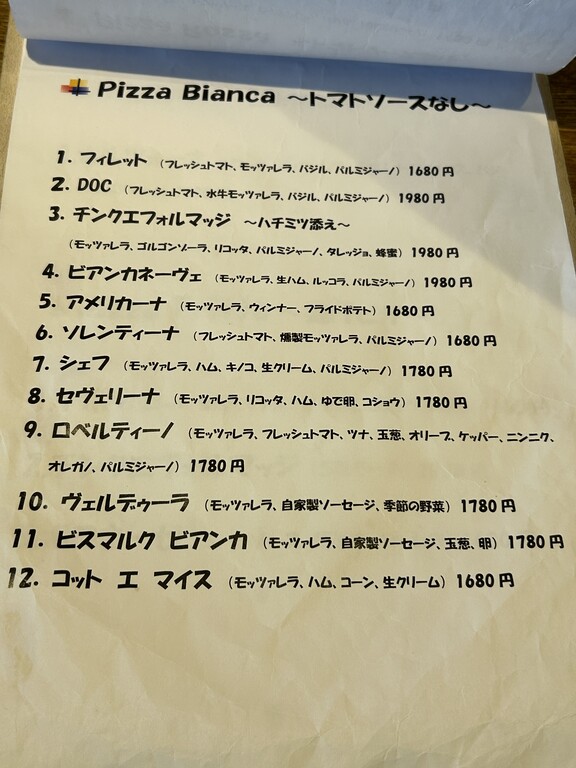 Pizza Bianca ～トマトソースなし～
1. フィレット （フレッシュトマト、モッツァレラ、バジル、パルミジャーノ） 1680円
2. DOC （フレッシュトマト、水牛モッツァレラ、バジル、パルミジャーノ） 1980円
3. チンクエフォルマッジ ～ハチミツ添え～
（モッツァレラ、ゴルゴンゾーラ、リコッタ、パルミジャーノ、タレッジョ、蜂蜜） 1980円
4. ビアンカネーヴェ （モッツァレラ、生ハム、ルッコラ、パルミジャーノ） 1980円
5. アメリカーナ （モッツァレラ、ウィンナー、フライドポテト） 1680円
6. ソレンティーナ （フレッシュトマト、燻製モッツァレラ、パルミジャーノ） 1680円
7. シェフ （モッツァレラ、ハム、キノコ、生クリーム、パルミジャーノ） 1780円
8. セヴェリーナ （モッツァレラ、リコッタ、ハム、ゆで卵、コショウ） 1780円
9. ロベルティーノ （モッツァレラ、フレッシュトマト、ツナ、玉葱、オリーブ、ケッパー、ニンニク、
オレガノ、パルミジャーノ） 1780円
10. ヴェルデゥーラ （モッツァレラ、自家製ソーセージ、季節の野菜） 1780円
11. ビスマルク ビアンカ （モッツァレラ、自家製ソーセージ、玉葱、卵） 1780円
12. コット エ マイス （モッツァレラ、ハム、コーン、生クリーム） 1680円